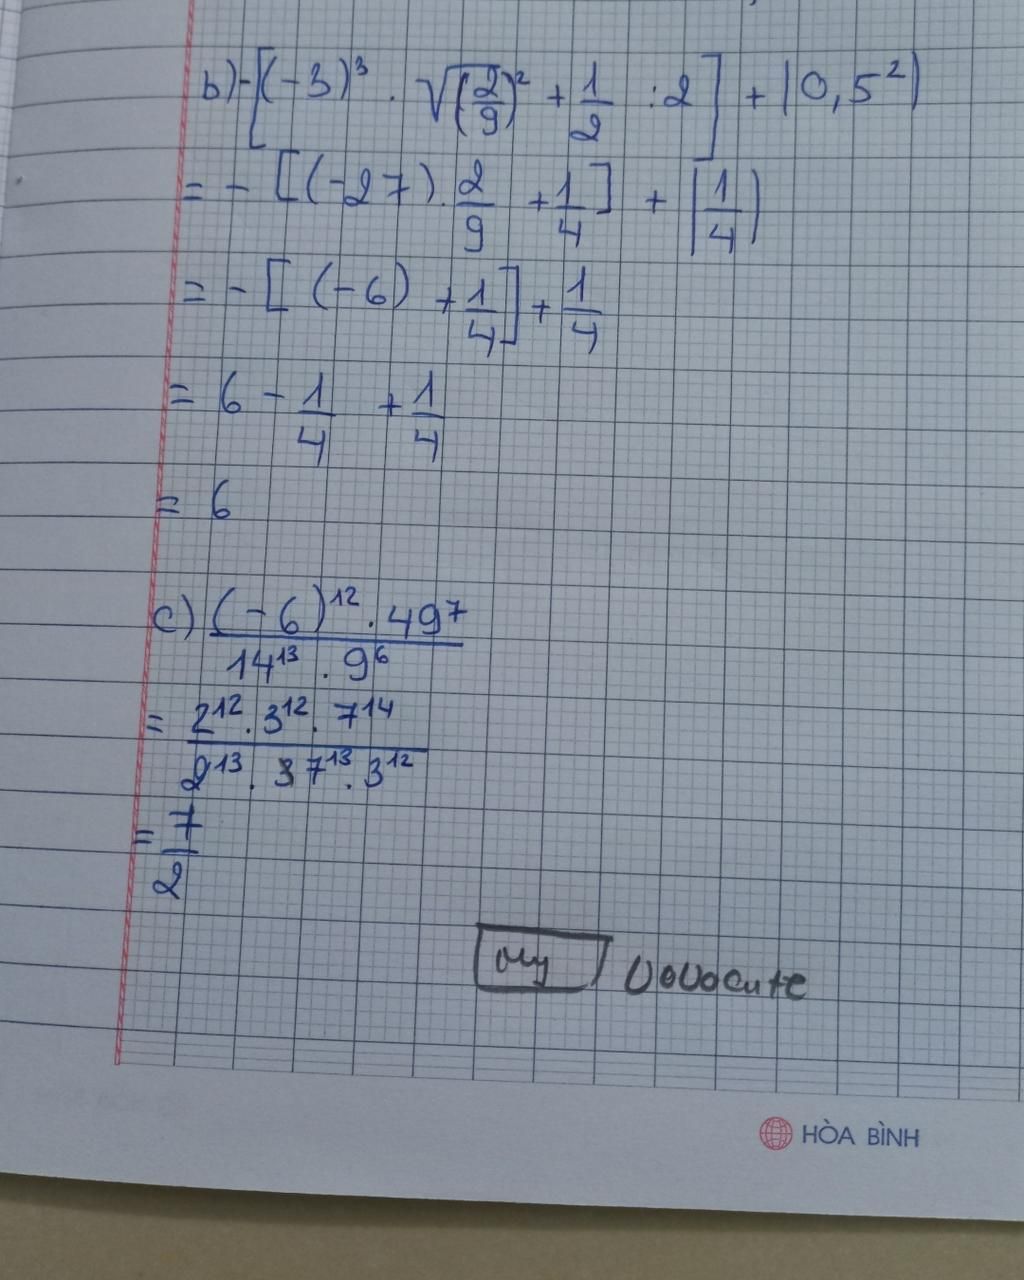 b) -[(-3)³ . √(2/9)² + 1/2 : 2] + |0,5²|
= - [(-27) . 2/9 + 1/4] + |1/4|
= - [(-6) + 1/4] + 1/4
= 6 - 1/4 + 1/4
= 6
c) (-6)¹² . 49⁷ / 14¹³ . 9⁶
= 2¹² . 3¹² . 7¹⁴ / 2¹³ . 7¹³ . 3¹²
= 7/2
My
HÒA BÌNH